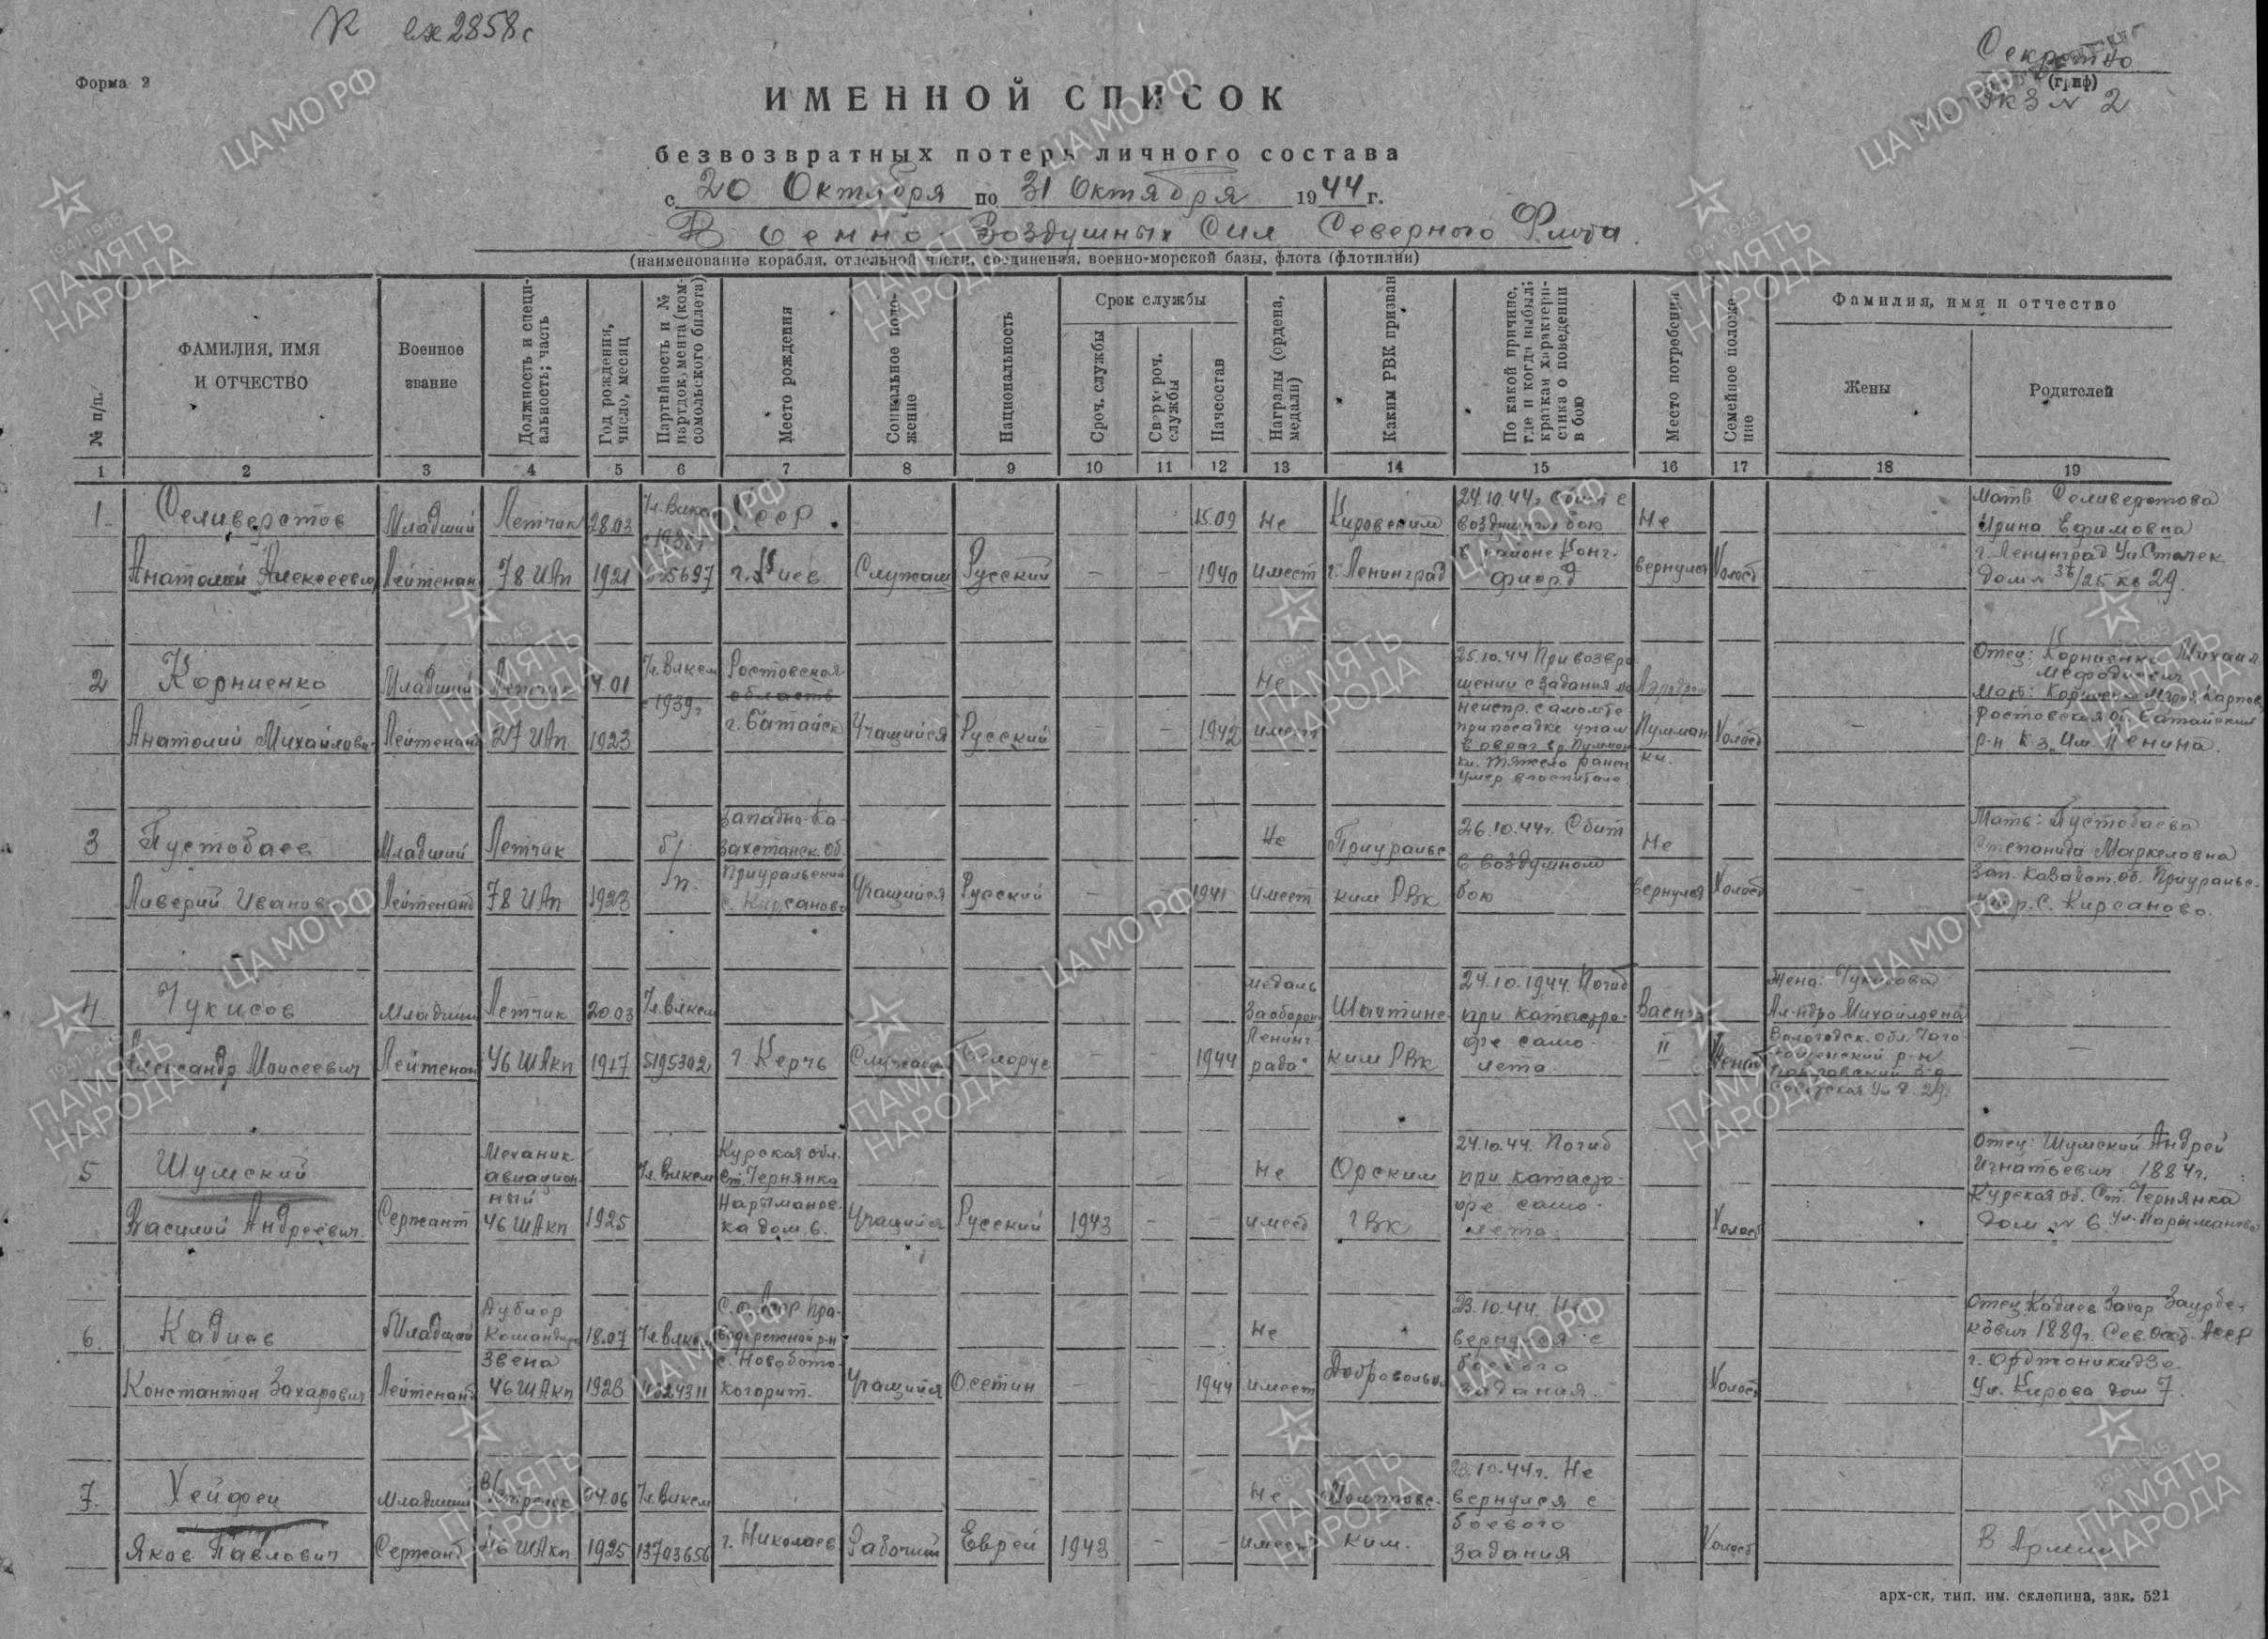 К вх 2858с
Секретно
(гриф)
Экз № 2
Форма 2
ИМЕННОЙ СПИСОК
безвозвратных потерь личного состава
с 20 Октября по 31 Октября 1944 г.
Военно-Воздушных Сил Северного Флота.
(наименование корабля, отдельной части, соединения, военно-морской базы, флота (флотилии)
№ п/п.
ФАМИЛИЯ, ИМЯ
И ОТЧЕСТВО
Военное
звание
Должность и специ-
альность; часть
Год рождения,
число, месяц
Партийность и №
партдокумента (ком-
сомольского билета)
Место рождения
Социальное поло-
жение
Национальность
Срок службы
Сроч. службы
Сверхсроч.
службы
Начсостав
Награды (ордена,
медали)
Каким РВК призван
По какой причине,
где и когда выбыл;
краткая характери-
стика о поведении
в бою
Место погребения
Семейное положе-
ние
Фамилия, имя и отчество
Жены
Родителей
1 2 3 4 5 6 7 8 9 10 11 12 13 14 15 16 17 18 19
1.
Селиверстов
Анатолий Алексеевич
Младший
Лейтенант
Летчик
78 ИАп
28.03
1921
Чл. Влкс
с 1938г
СССР.
г. Киев
Служащ
Русский
—
—
15.09
1940
Не
имеет
Кировским
г. Ленинград
24.10.44г. Сбит в
воздушном бою
в районе Конг-
фиорд
Не
вернулся
Холост
—
Мать Селиверстова
Ирина Ефимовна
г. Ленинград Ул. Стачек
дом № 36/25 кв 29.
2
Корниенко
Анатолий Михайлович
Младший
Лейтенант
Летчик
27 ИАп
4.01
1923
Чл. Влксм
с 1939г
Ростовская
область
г. Батайск
Учащийся
Русский
—
—
1942
Не
имеет
25.10.44 При возвра
щении с задания на
неиспр. самолте
при посадке упал
в овраг в р. Пумман
ки. тяжело ранен
умер в госпитале
Аэродром
Пумман
ки.
Холост
—
Отец: Корниенко Михаил
Мефодиевич
Мать: Корниенко Мария Карпов
Ростовская об. Батайский
р-н К-з „Им. Ленина.
3
Пустобаев
Ливерий Иванов
Младший
Лейтенант
Летчик
78 ИАп
1923
б/п.
Западно-Ка-
захстанск. об.
Приуральский
с. Кирсаново
Учащийся
Русский
—
—
1941
Не
имеет
Приуральс
ким РВк
26.10.44г. Сбит
в воздушном
бою
Не
вернулся
Холост
—
Мать: Пустобаева
Степанида Маркеловна
Зап. Казахст. об. Приуральс-
кий р. С. Кирсаново.
4.
Чукисов
Александр Моисеевич
Младший
Лейтенант
Летчик
46 ШАкп
20.03
1917
Чл. влксм
5195302
г. Керчь
Служащ
Белорус
—
—
1944
Медаль
За оборону
Ленинг-
рада"
Шахтинс-
ким РВк
24.10.1944. Погиб
при катастро-
фе само-
лета.
Ваенга
II
Женат
Жена: Чукисова
Ал-ндра Михайловна
Вологодск. обл. Чаго-
Советская ул д. 29.
—
—
5
Шумский
Василий Андреевич.
Сержант
Механик
авиацион-
ный
46 ШАкп
1925
Чл. Влксм
Курская обл.
Ст. Чернянка
Нарымановс-
ка дом. 6.
Учащийся
Русский
1943
—
—
Не
имеет
Орским
ГВк
24.10.44. Погиб
при катастро-
фе само-
лета.
Холост
Отец: Шумский Андрей
Игнатьевич 1884г.
Курская об. Ст. Чернянка
дом № 6 ул. Нарыманова
6.
Кадиев
Константин Захарович
Младший
Лейтенант
Командира
звена
46 ШАкп
18.07
1923
Чл. влксм
С.о. Асср Пра-
вобережной р-н
с. Новобато-
когорит.
Учащийся
Осетин
—
—
1944
Не
имеет
Добровольно
23.10.44. Не
вернулся с
боевого
задания.
Холост
Отец Кадиев Захар Заурбе-
кович 1889г. Сев. Осет. Асср
г. Орджоникидзе.
Ул. Кирова дом 7.
7.
Хейфец
Яков Павлович
Младший
Сержант
В/стрелок
46 ШАкп
04.06
1925
Чл. Влксм
13703656
г. Николаев
Рабочий
Еврей
1943
-
-
Не
имеет
Молтовс-
ким.
23.10.44г. Не
вернулся с
боевого
задания
Холост
В Армии
арх-ск, тип. им. склепина, зак. 521
ЦАМО РФ
1941-1945
ПАМЯТЬ
НАРОДА